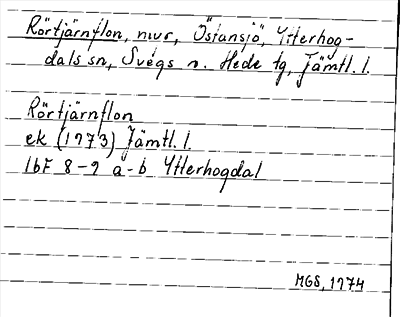 Rörtjärnflon, mvr, Östansjö, Ytterhog-
dals sn, Svegs o. Hede tg, Jämtl. l.
Rörtjärnflon
ek (1973) Jämtl. l.
16F 8-9 a-b Ytterhogdal
MGS, 1974